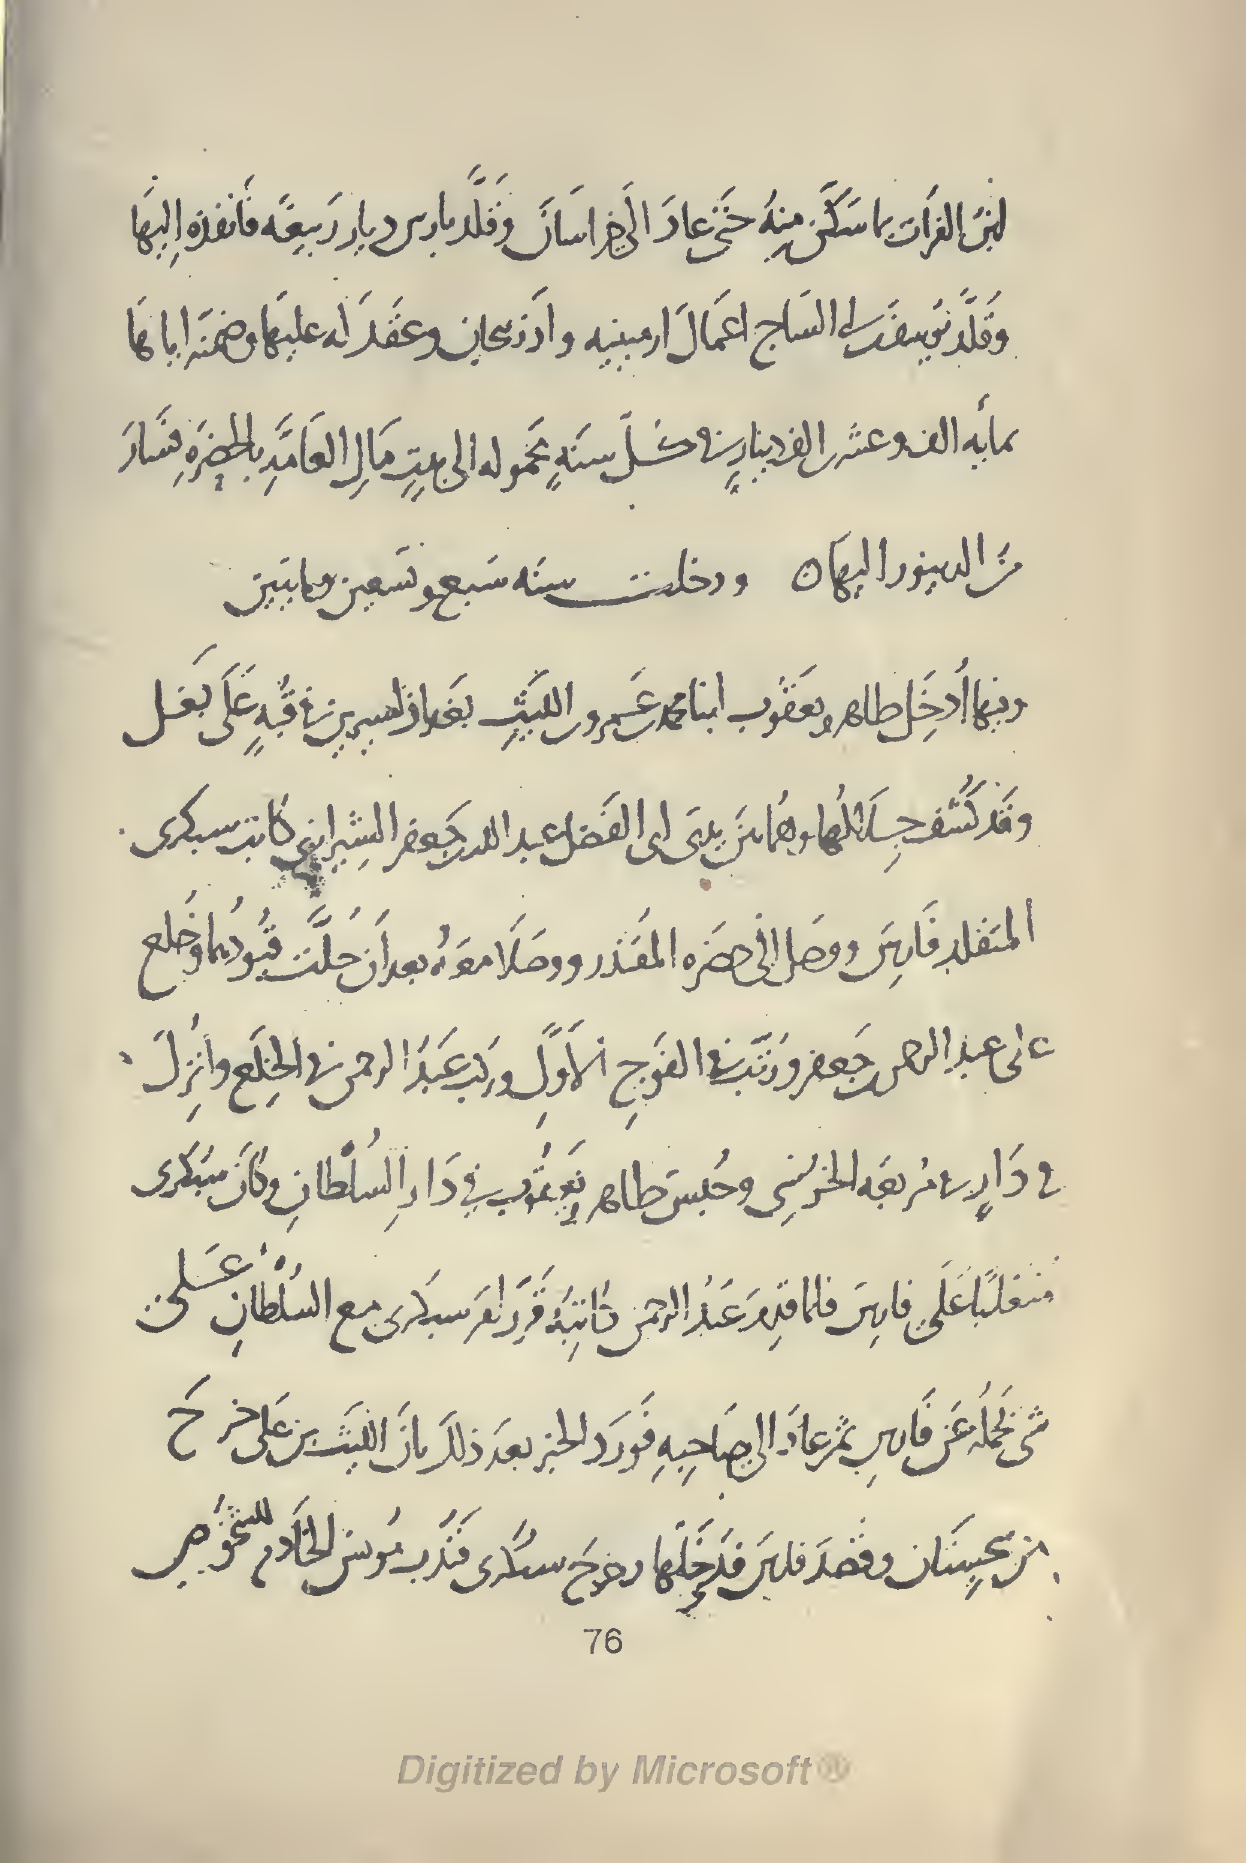 ابن الفرات بما سكن منه حتى عاد الى خراسان وقلد بارس ديار ربيعة فانفذه اليها
وقلد يوسف بن ابى الساج اعمال ارمينيه واذربيجان وعقد له عليها وضمنه اياها
بمايه الف وعشرين الف دينار فى كل سنةٍ محموله الى بيتِ مَالِ العامّةِ بالحضرةِ فسار
من الدينور اليها ودخلت سنه سبع وتسعين ومايتين
وفيها اُدخِل طاهر ويعقوب ابنا محمد بن عمرو بن الليث بغداذ اسيرين فى قبةٍ على بغل
وقد كُشف جلالُها وهُما بين يدى ابى الفضل عبد الله بن جعفر الشيرازى كاتب سبكرى
المتقلد فارس ووصل الى حضره المقتدر ووصلا معه بعد ان حُلّت قيودهما وخُلع
على عبد الرحمن بن جعفر ورتب فى الفوجِ الاَوّلِ وركب عبدُ الرحمن فى الخِلَع واُنزِل
فى دَارٍ فى مُربعة الخرسِى وحُبس طاهر ويعقوب فى دَارِ السُلْطانِ وكان سبكرى
متغلبًا على فارس فلما قدِم عَبدُ الرحمن كاتبُه قرر امر سبكرى مع السُلْطانِ على
شى يحمله عن فارس ثم عاد الى صاحبهِ فورد الخبر بعد ذلك بان الليث بن على خرج
من سجستان وقصد فارس فدخلها وخرج سبكرى فندب مونس الخادم للشخوص
76
Digitized by Microsoft®